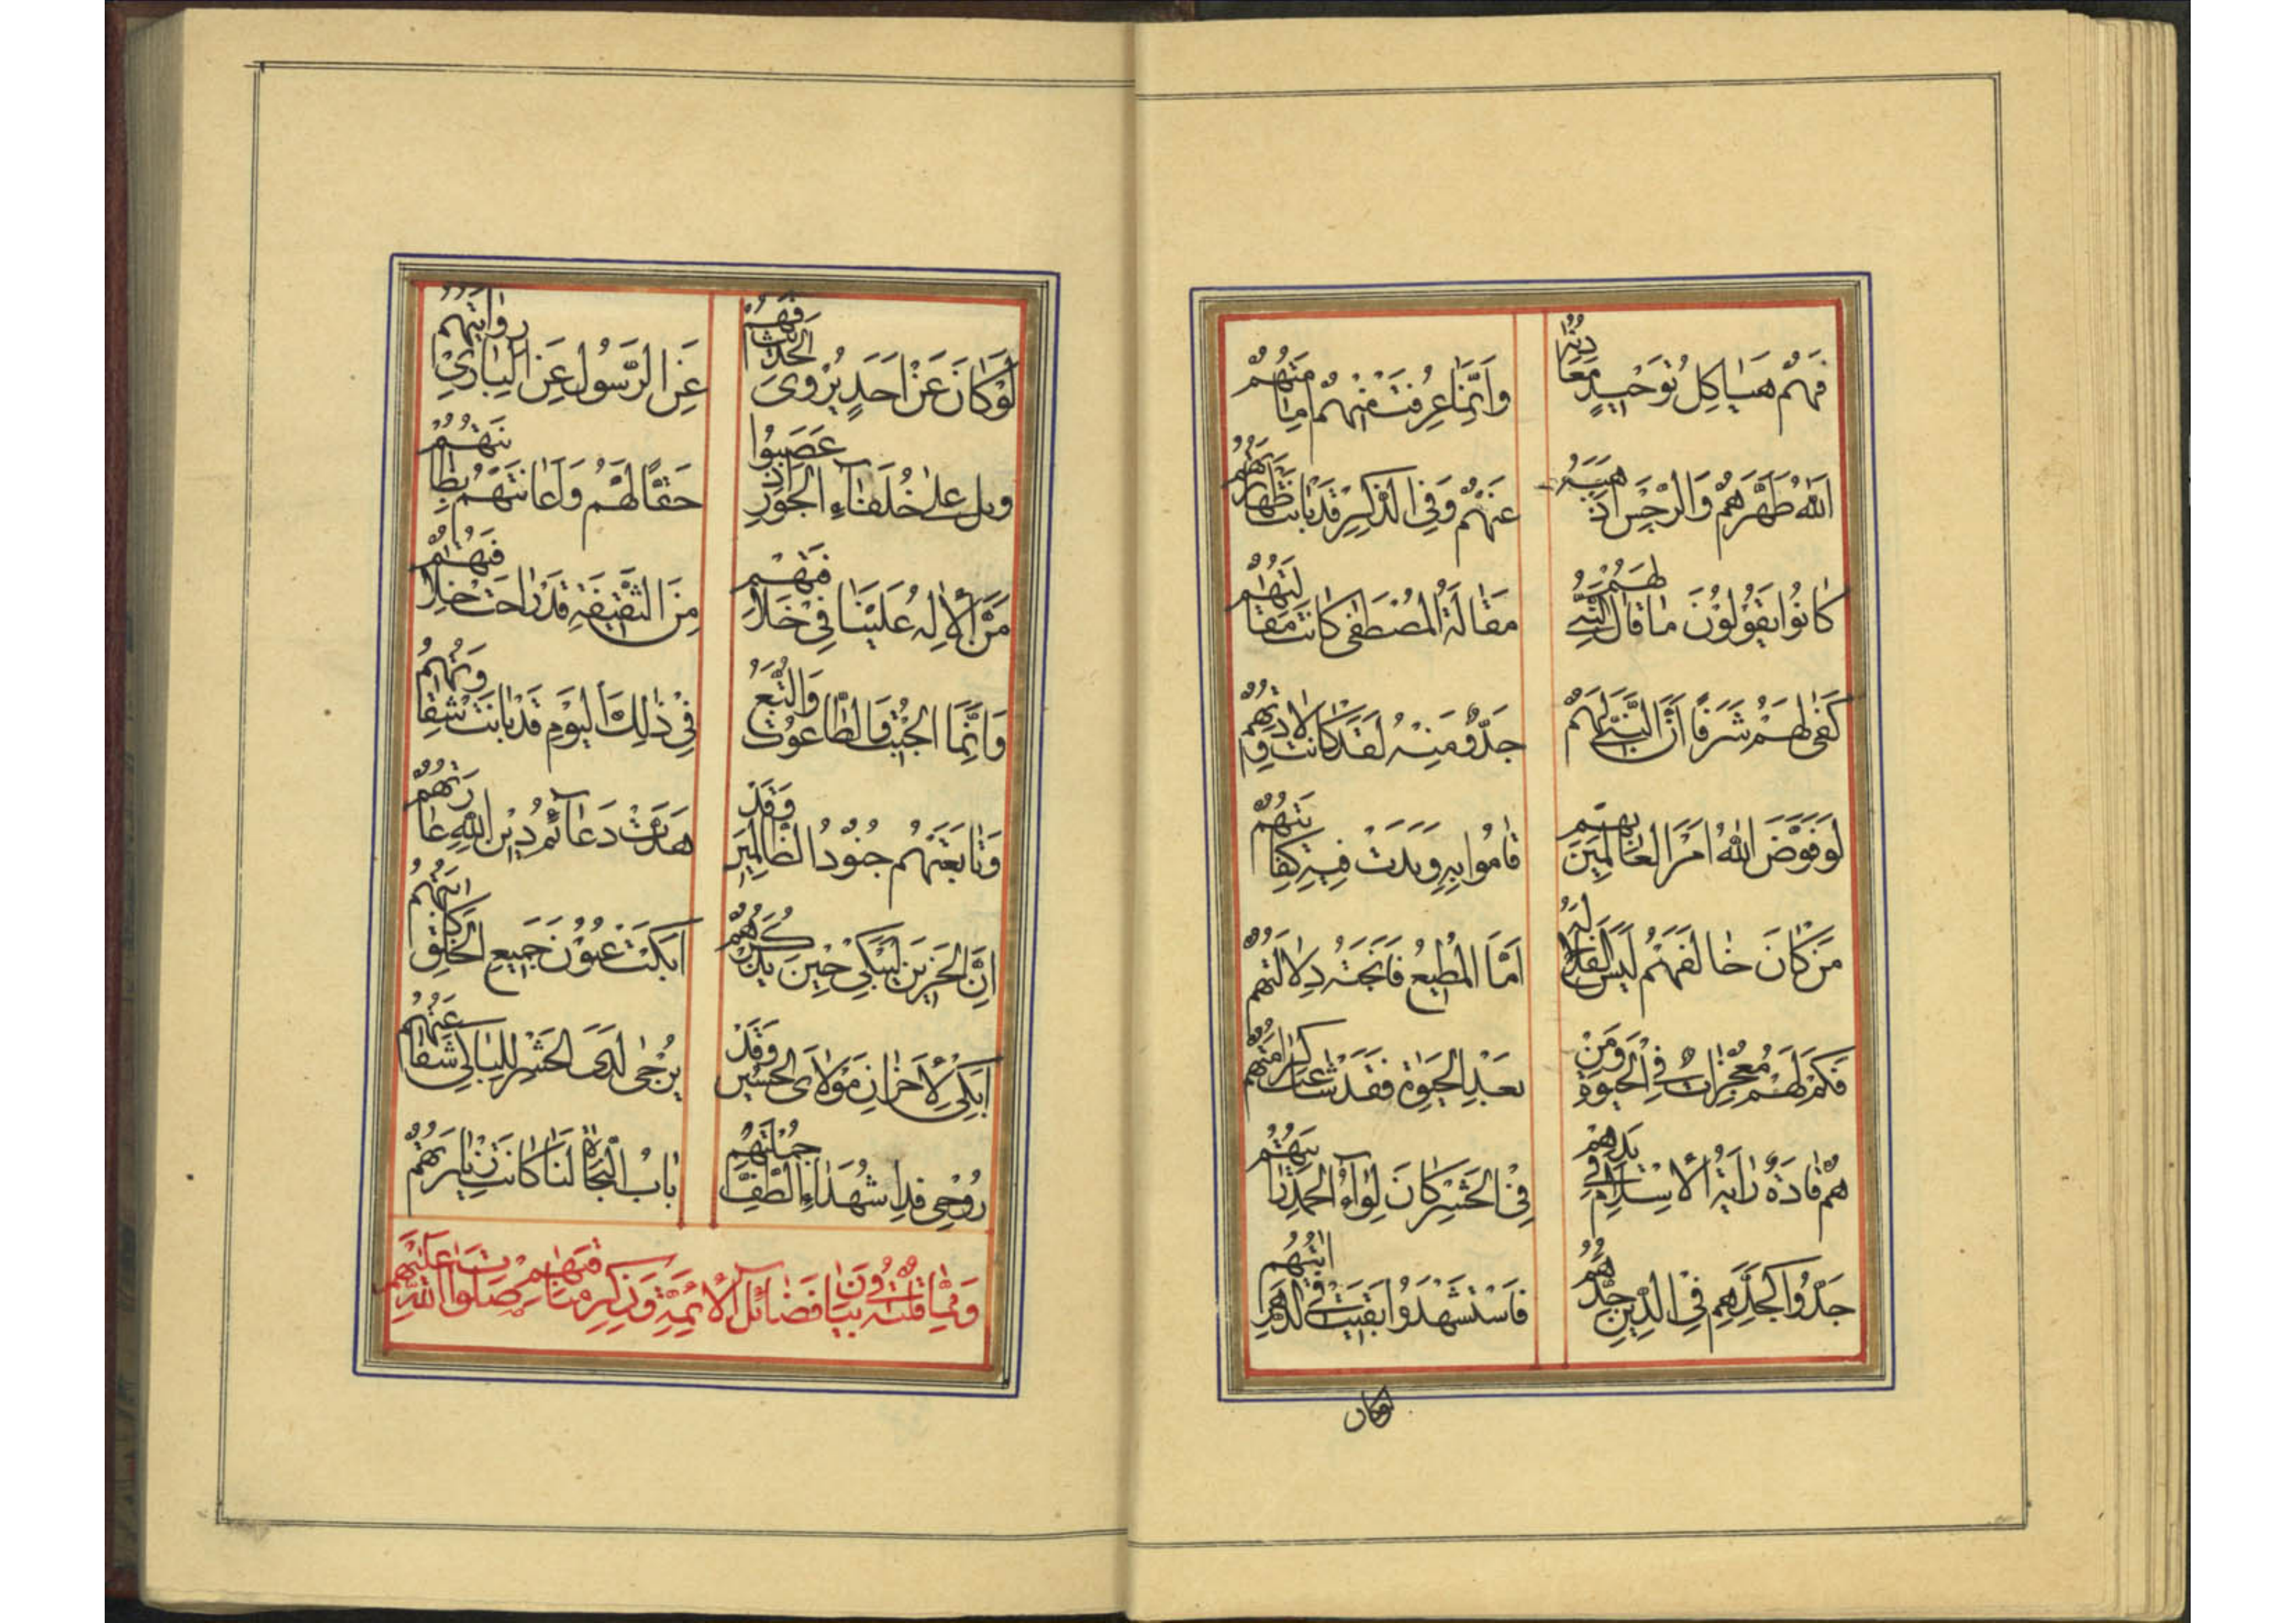 فَهُمْ هَيَاكِلُ تَوْحِيدٍ مَعَادِنُهُ وَإِنَّمَا عُرِفَتْ مِنْهُمْ
اَللهُ طَهَّرَهُمْ وَالرِّجْسَ اَذْهَبَهُ عَنْهُمْ وَفِي الذِّكْرِ قَدْ بَانَتْ طَهَارَتُهُمْ
كَانُوا يَقُولُونَ مَا قَالَ النَّبِيُّ لَهُمْ مَقَالَةُ الْمُصْطَفَى كَانَتْ مَقَالَتَهُمْ
كَفَى لَهُمْ شَرَفًا اَنَّ النَّبِيَّ لَهُمْ جَدٌّ وَمِنْهُ لَقَدْ كَانَتْ وِلَادَتُهُمْ
لَوْ فَوَّضَ اللهُ اَمْرَ الْعَالَمِينَ بِهِمْ قَامُوا بِهِ وَبَدَتْ فِيهِ كِفَايَتُهُمْ
مَنْ كَانَ خَالَفَهُمْ لَيْسَ الْفَلَاحُ لَهُ اَمَّا الْمُطِيعُ فَاَنْجَتْهُ دِلَالَتُهُمْ
فَكَمْ لَهُمْ مُعْجِزَاتٌ فِي الْحَيٰوةِ وَمِنْ بَعْدِ الْحَيٰوةِ فَقَدْ شَاعَتْ كَرَامَتُهُمْ
هُمْ قَادَةٌ رَايَةُ الْاِسْلَامِ فِي يَدِهِمْ فِي الْحَشْرِ كَانَ لِوَاءُ الْحَمْدِ رَايَتَهُمْ
جَدُّوا كَجَدِّهِمِ فِي الدِّينِ جِدَّهُمُ فَاسْتُشْهِدُوا بَقِيَتْ فِي الدَّهْرِ
لوكان
لَوْ كَانَ عَنْ اَحَدٍ يُرْوَى الْحَدِيثُ فَهُمْ عَنِ الرَّسُولِ عَنِ الْبَارِي رِوَايَتُهُمْ
وَيْلٌ عَلَى خُلَفَاءِ الْجَوْرِ اِذْ غَصَبُوا حَقًّا لَهُمْ وَاَعَانَتْهُمْ بِطَانَتُهُمْ
مَنَّ الْاِلٰهُ عَلَيْنَا فِي خِلَافَتِهِمْ مِنَ السَّقِيفَةِ قَدْ رَاحَتْ خِلَافَتُهُمْ
وَاِنَّمَا الْجِبْتُ وَالطَّاغُوتُ وَالتَّبَعُ فِي ذٰلِكَ الْيَوْمِ قَدْ بَانَتْ شَقَاوَتُهُمْ
وَتَابَعَتْهُمْ جُنُودُ الظَّالِمِينَ وَقَدْ هَدَّتْ دَعَائِمَ دِينِ اللهِ غَارَتُهُمْ
اِنَّ الْحَزِينَ لَيَبْكِي حِينَ يَذْكُرُهُمْ اَبْكَتْ عُيُونَ جَمِيعِ الْخَلْقِ
اَبْكِي لِاَحْزَانِ مَوْلَايَ الْحُسَيْنِ وَقَدْ يُرْجَى لَدَى الْحَشْرِ لِلْبَاكِي شَفَاعَتُهُمْ
رُوحِي فِدَا شُهَدَاءِ الطَّفِّ جُمْلَتِهِمْ بَابُ النَّجَاةِ لَنَا كَانَتْ زِيَارَتُهُمْ
وَمِمَّا قُلْتُهُ فِي بَيَانِ فَضَائِلِ الْاَئِمَّةِ وَذِكْرِ مَنَاقِبِهِمْ صَلَوَاتُ اللهِ عَلَيْهِمْ